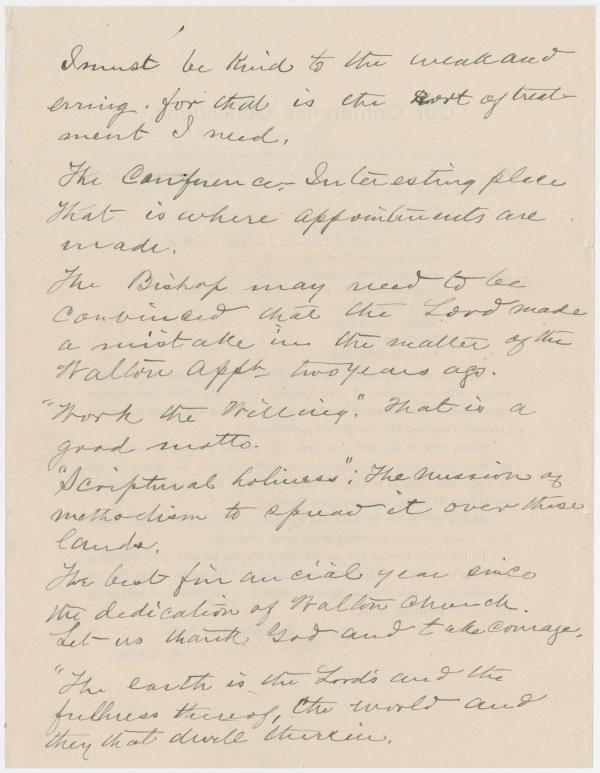 I must be kind to the weak and
erring. for that is the sort of treat
ment I need.
The Conference. - Interesting place
that is where appointments are
made.
The Bishop may need to be
convinced that the Lord made
a mistake in the matter of the
Walton Appt two years ago.
"Work the Willing". That is a
good motto.
"Scriptural holiness": The mission of
methodism to spread it over these
lands.
The best financial year since
the dedication of Walton Church.
Let us thank God and take courage.
"The earth is the Lord's and the
fullness thereof, the world and
they that dwell therein.